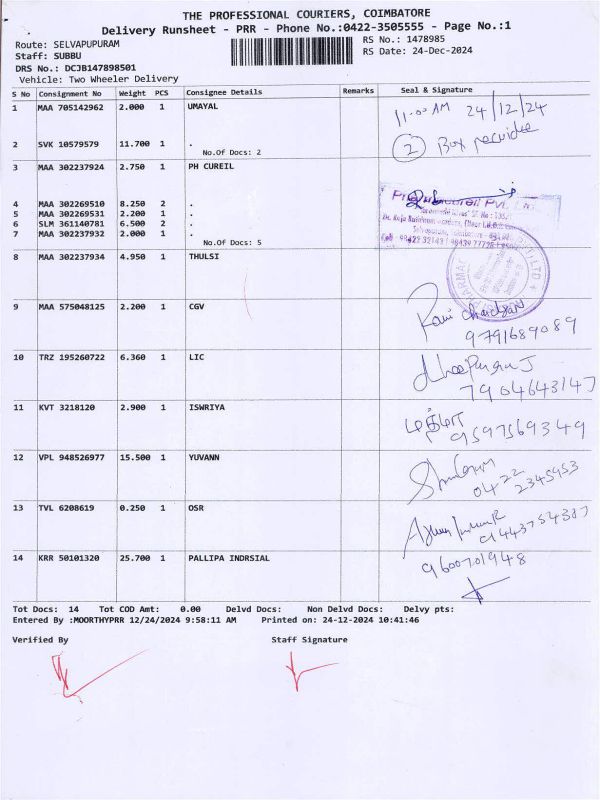 THE PROFESSIONAL COURIERS, COIMBATORE
Delivery Runsheet - PRR - Phone No.:0422-3505555 - Page No.:1
Route: SELVAPUPURAM RS No.: 1478985
Staff: SUBBU RS Date: 24-Dec-2024
DRS No.: DCJB147898501
Vehicle: Two Wheeler Delivery
S No Consignment No Weight PCS Consignee Details Remarks Seal & Signature
1 MAA 705142962 2.000 1 UMAYAL 11.00 AM 24/12/24
2 SVK 10579579 11.700 1 . 2 Box
No.Of Docs: 2
3 MAA 302237924 2.750 1 PH CUREIL
4 MAA 302269510 8.250 2 .
5 MAA 302269531 2.200 1 .
6 SLM 361140781 6.500 2 .
7 MAA 302237932 2.000 1 .
No.Of Docs: 5
8 MAA 302237934 4.950 1 THULSI
9 MAA 575048125 2.200 1 CGV
9791689089
10 TRZ 195260722 6.360 1 LIC
7904643147
11 KVT 3218120 2.900 1 ISWRIYA
9597569349
12 VPL 948526977 15.500 1 YUVANN
0422 2345953
13 TVL 6208619 0.250 1 OSR
14 KRR 50101320 25.700 1 PALLIPA INDRSIAL 9600701948
Tot Docs: 14 Tot COD Amt: 0.00 Delvd Docs: Non Delvd Docs: Delvy pts:
Entered By :MOORTHYPRR 12/24/2024 9:58:11 AM Printed on: 24-12-2024 10:41:46
Verified By Staff Signature